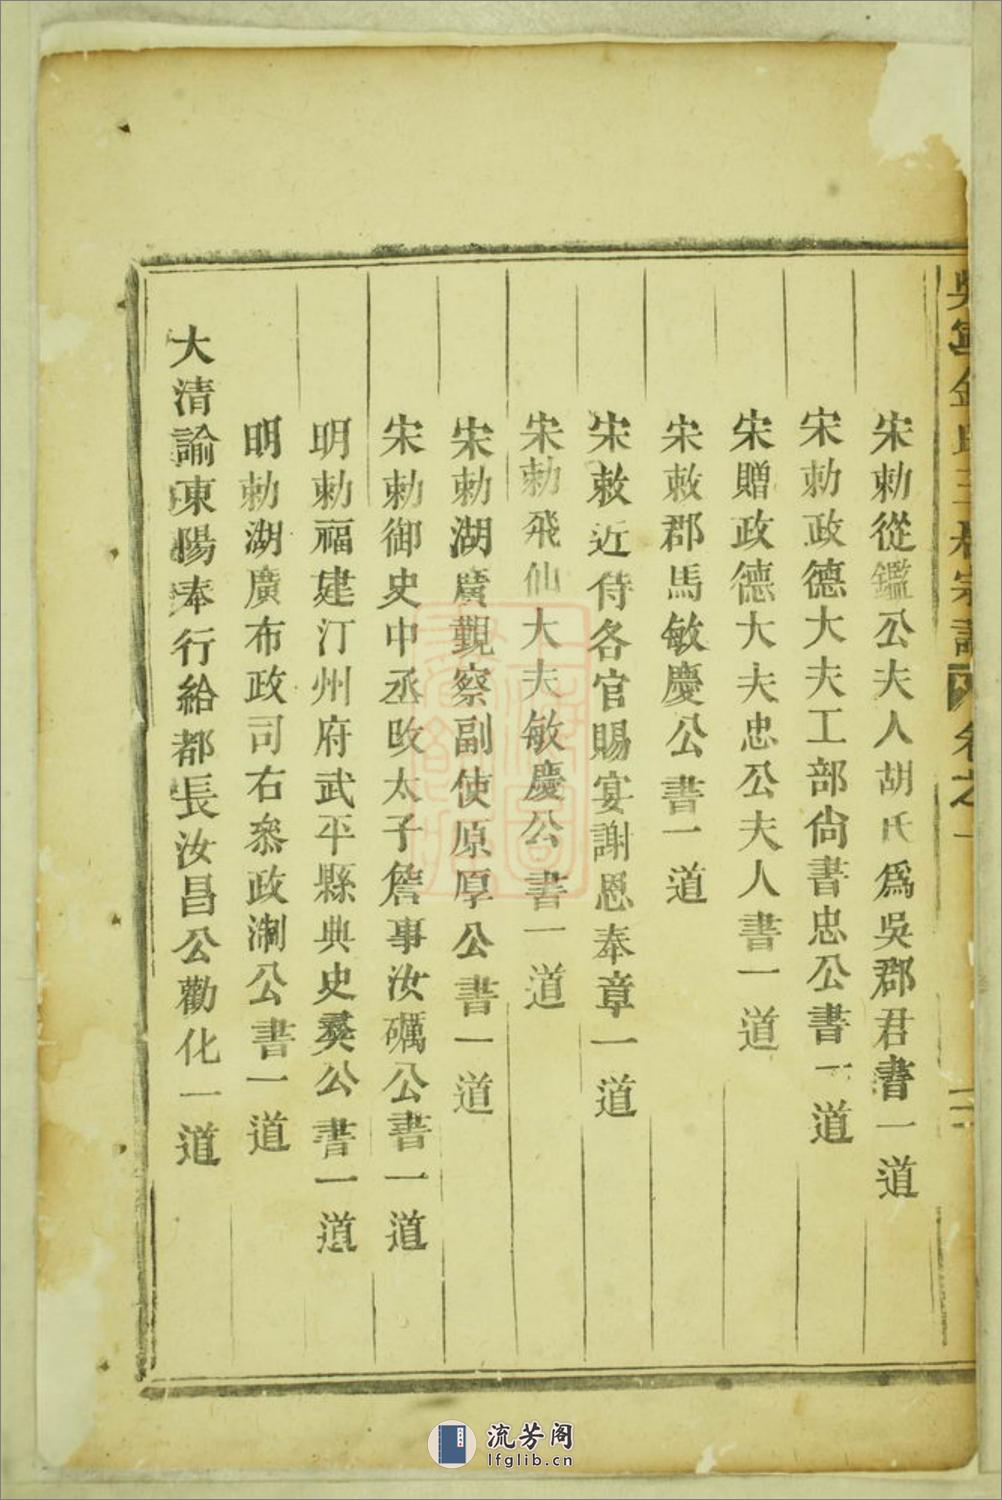 吳寧金氏三橋宗譜 卷之一
宋勅從鑑公夫人胡氏爲吳郡君書一道
宋勅政德大夫工部尙書忠公書一道
宋贈政德大夫忠公夫人書一道
宋敕郡馬敏慶公書一道
宋敕近侍各官賜宴謝恩奉章一道
宋勅飛仙大夫敏慶公書一道
宋勅湖廣觀察副使原厚公書一道
宋勅御史中丞改太子詹事汝礪公書一道
明勅福建汀州府武平縣典史彛公書一道
明勅湖廣布政司右叅政淛公書一道
大清諭東陽奉行給都長汝昌公勸化一道
流芳阁
lfglib.cn